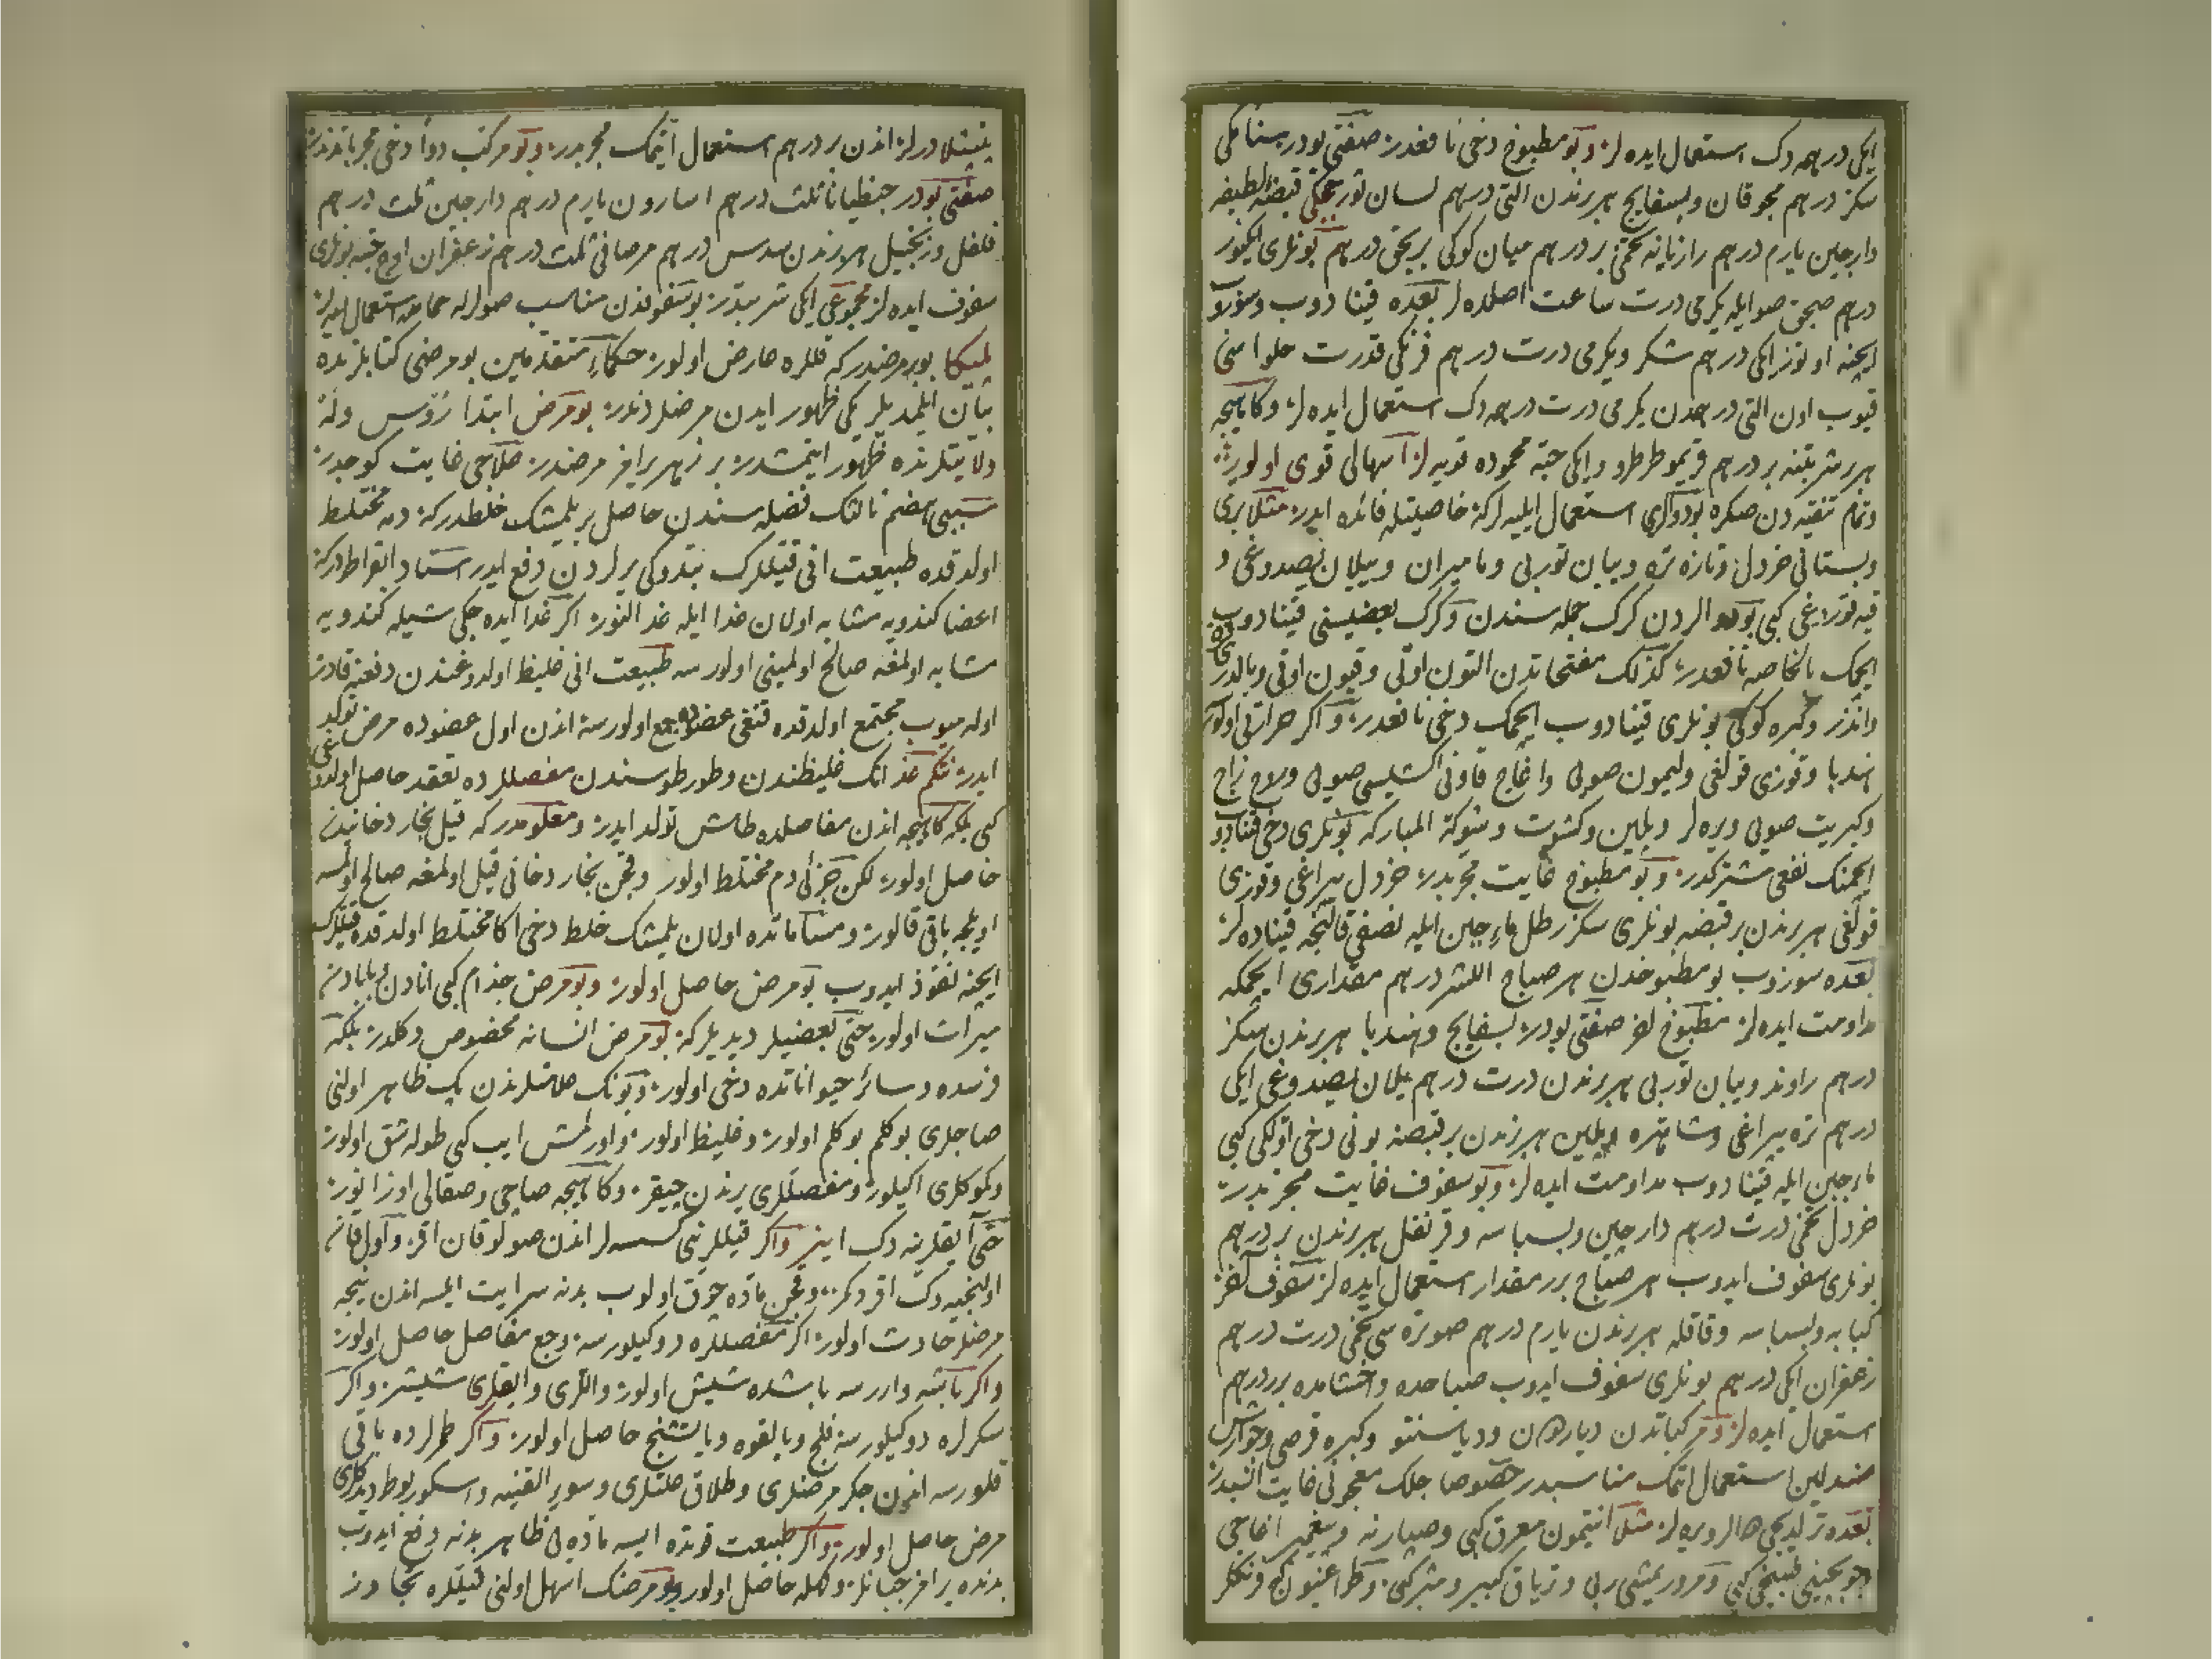 ایکی درهمدك استعمال ایده لر وبو مطبوخ دخی نافعدر صفتی بودر سنامکی
سکز درهم وبسفایج هر برندن التی درهم لسان ثور چیچکی قبضه لطیفه
دارچین یارم درهم رازیانه تخمی بر درهم میان کوکی بر بچق درهم بونلری ایکیوز
درهم صیجق صو ایله یکرمی درت ساعت اصلده لر بعده قینادوب وسوزوب
ایچنه اوتوز ایکی درهم شکر ویکرمی درت درهم فرنکی قدرت حلواسی
قیوب اون التی درهمدن یکرمی درت درهمدك استعمال ایده لر وکاهیجه
هر شربتنه بر درهم قریمو طرطرو وایکی حبه محموده قویه لر اسهالی قوی اولور
وتمام تنقیه دن صکره بو دوالری استعمال ایلیه لر که خاصیتیله فائده ایدر مثلا بری
وبستانی خردل وتازه تره ویبان توربی ومامیران وییلان یصدوغی و
کبی بو دوالردن کرك جمله سندن وکرك بعضیسنی قینادوب
ایچمك بالخاصه نافعدر کذلك مفتحاتدن التون اوتی وقیون اوتی وبالدر
واندز وکبره کوکی بونلری قینادوب ایچمك دخی نافعدر واکر حرارتی اولور
هندبا وقوزی قولغی ولیمون صویی واغاج قاونی اکشیسی صویی وروح زاج
وکبریت صویی ویره لر وکشوت وشوکة المبارکه بونلری دخی
ایچمنك نفعی مشترکدر وبو مطبوخ غایت مجربدر خردل یپراغی وقوزی
قولغی هر برندن بر قبضه بونلری سکز رطل ماء جبن ایله نصفی قالنجه قیناده لر
بعده سوزوب بو مطبوخدن هر صباح اللیشر درهم مقداری ایچمکه
مداومت ایده لر مطبوخ اخر صفتی بودر بسفایج وهندبا هر برندن سکز
درهم راوند ویبان توربی هر برندن درت درهم ییلان یصدوغی ایکی
درهم تره یپراغی وشاهتره هر برندن بر قبضه بونی دخی اولکی کبی
ماء جبن ایله قینادوب مداومت ایده لر وبو سفوف غایت مجربدر
خردل تخمی درت درهم دارچین وبسباسه وقرنفل هر برندن بر درهم
بونلری سفوف ایدوب هر صباح بر مقدار استعمال ایده لر سفوف اخر
کبابه وبسباسه وقاقله هر برندن یارم درهم صو تره سی تخمی درت درهم
زعفران ایکی درهم بونلری سفوف ایدوب صباحده واخشامده بر درهم
استعمال ایده لر ومرکباتدن ودیاسنتو وکبره قرصی وجوارش
صندلین استعمال اتمك مناسبدر خصوصا چلك معجونی غایت
بعده ترلدیجی ویره لر مثلا انتیمون معرق کبی وصپارنه وپیغمبر اغاجی
وچوب چینی طبیخی کبی ومرور ربی وتریاق کبیر
درلر اندن بر درهم استعمال اتمك مجربدر وبو مرکب دوا دخی مجرباتدندر
صفتی بودر جنطیانا ثلث درهم اسارون یارم درهم دارچین ثلث درهم
فلفل وزنجبیل هر برندن سدس درهم مر صافی ثلث درهم زعفران اوچ حبه بونلری
سفوف ایده لر مجموعی ایکی شربتدر بو سفوفدن مناسب صولرله استعمال ایده لر
پلیکا بو بر مرضدر که قللره عارض اولور حکماء متقدمین بو مرضی کتابلرنده
بیان ایلمدیلر یکی ظهور ایدن مرضلردندر بو مرض ابتدا روس وله
ولایتلرنده ظهور ایتمشدر بر زهر یرامز مرضدر علاجی غایت کوجدر
سببی هضم ثالثك فضله سندن حاصل بر یلمیشك خلطدر که دمه مختلط
اولدقده طبیعت انی قیللرك بتدوکی یرلردن دفع ایدر استاد ابقراط درکه
اعضا کندویه مشابه اولان غدا ایله غدالنور اکر غدا ایده جکی شیئله کندویه
مشابه اولمغه صالح اولمینی اولور سه طبیعت انی غلیظ اولدوغندن دفعنه قادر
اولمیوب مجتمع اولدقده قنغی عضوده جمع اولورسه اندن اول عضوده مرض تولد
ایدر نتکم غدانك غلیظندن وطورطوسندن مفصللرده تعقد حاصل اولدوغی
کبی بلکه کاهیجه اندن مفاصلده طاش تولد ایدر ومعلومدر که قیل بخار دخانیدن
حاصل اولور لکن جزئی دم مختلط اولور وقچن بخار دخانی قیل اولمغه صالح اولمسه
اویله باقی قالور ومساماتده اولان یلمیشك خلط دخی اکا مختلط اولدقده قیللرك
ایچنه نفوذ ایدوب بو مرض حاصل اولور وبو مرض جذام کبی انادن وبابادن
میراث اولور حتی بعضیلر دیدیلر که بو مرض انسانه مخصوص دکلدر بلکه
فرسده وسائر حیواناتده دخی اولور وبونك علامتلرندن پك ظاهر اولنی
صاجلری بوکلم بوکلم اولور وغلیظ اولور واورلمش ایپ کبی طولاشق اولور
وکوکلری اکیلور ومفصللری یرندن چیقر وکاهیجه صاجی وصقالی اوزانور
حتی ایقلرینه دك اینر واکر قیللرینی کسسه لر اندن صولو قان اقر واول قان
اولنجیه دك اقر دکر وقچن ماده چوق اولوب بدنه سرایت ایلسه اندن نیجه
مرضلر حادث اولور اکر مفصللره دوکیلورسه وجع مفاصل حاصل اولور
واکر باشه واررسه باشده شیش اولور واللری وایقلری شیشر واکر
سکرلره دوکیلورسه فلج ویا لقوه ویا تشنج حاصل اولور واکر طمرلرده باقی
قلورسه اندن جکر مرضلری وطلاق علتلری وسوء القنیه واسکوربوط دیدکلری
مرض حاصل اولور واکر طبیعت قوتده ایسه ماده یی ظاهر بدنه دفع ایدوب
بدنده یرامز چبانلر وکهله حاصل اولور وبو مرضك اسهل اولنی قیللره تجاوز